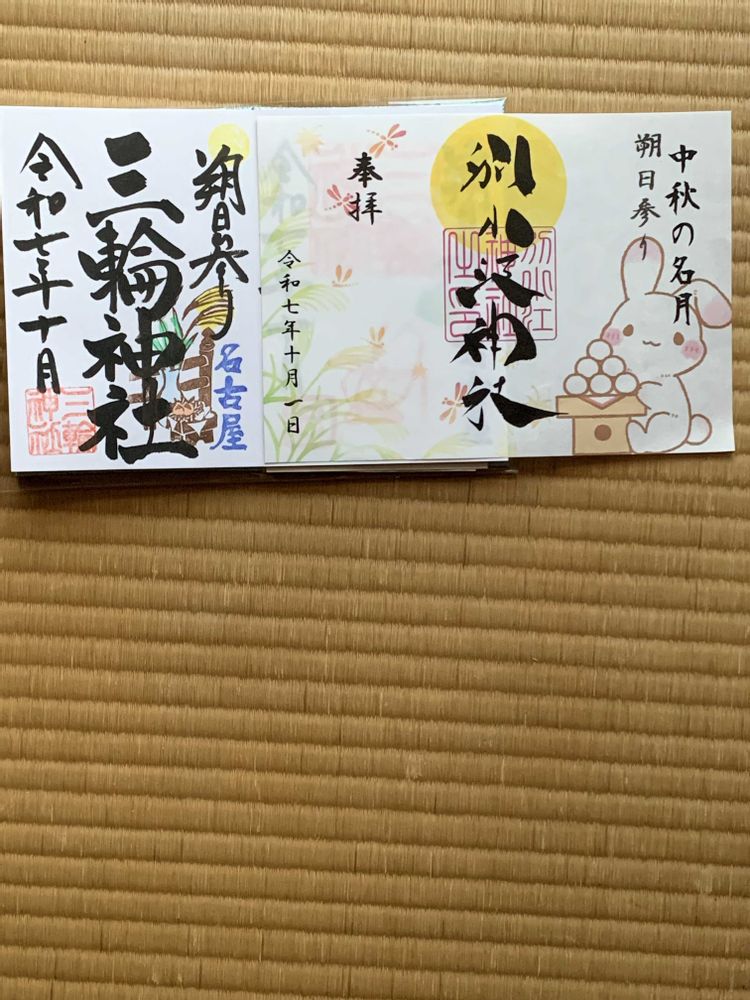 中秋の名月
朔日参り
別小江神社
別小江
神社
之印
奉拝
令和七年十月一日
朔日参り
名古屋
三輪神社
令和七年十月
三輪
神社